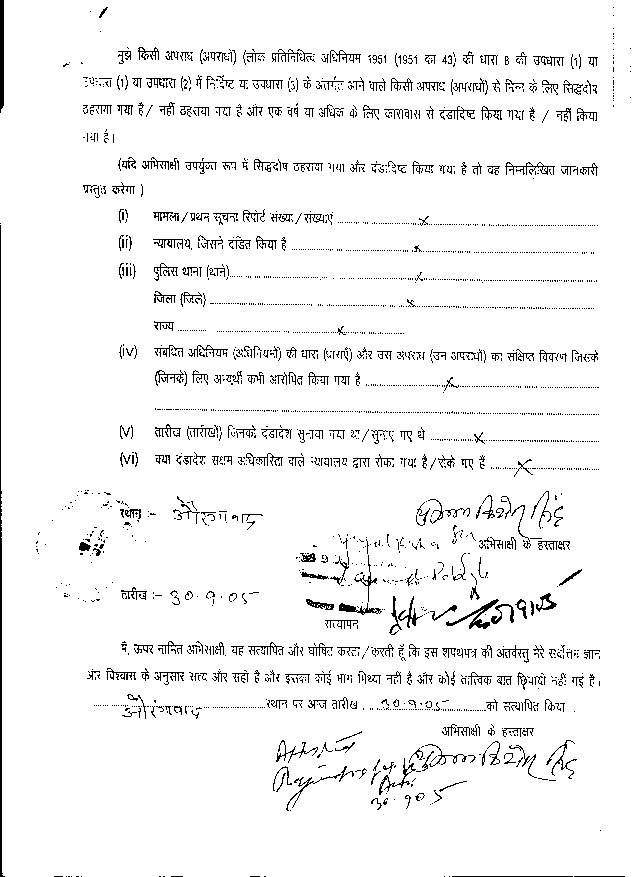 मुझे किसी अपराध (अपराधों) (लोक प्रतिनिधित्व अधिनियम 1951 (1951 का 43) की धारा 8 की उपधारा (1) या
उपधारा (1) या उपधारा (2) में निर्दिष्ट या उपधारा (3) के अंतर्गत आने वाले किसी अपराध (अपराधों) से भिन्न के लिए सिद्धदोष
ठहराया गया है / नहीं ठहराया गया है और एक वर्ष या अधिक के लिए कारावास से दंडादिष्ट किया गया है / नहीं किया
गया है।
(यदि अभिसाक्षी उपर्युक्त रूप में सिद्धदोष ठहराया गया और दंडादिष्ट किया गया है तो वह निम्नलिखित जानकारी
प्रस्तुत करेगा )
(i) मामला / प्रथम सूचना रिपोर्ट संख्या / संख्याएं ........ x
(ii) न्यायालय, जिसने दंडित किया है ........ x
(iii) पुलिस थाना (थाने) ........ x
जिला (जिले) ........ x
राज्य ........ x
(iv) संबंधित अधिनियम (अधिनियमों) की धारा (धाराएँ) और उस अपराध (उन अपराधों) का संक्षिप्त विवरण जिसके
(जिनके) लिए अभ्यर्थी कभी आरोपित किया गया है ........ x
(v) तारीख (तारीखों) जिनको दंडादेश सुनाया गया था / सुनाए गए थे ........ x
(vi) क्या दंडादेश सक्षम अधिकारिता वाले न्यायालय द्वारा रोका गया है / रोके गए हैं ........ x
स्थान :- औरंगाबाद
अभिसाक्षी के हस्ताक्षर
तारीख :- 30.9.05
सत्यापन
मैं, ऊपर नामित अभिसाक्षी, यह सत्यापित और घोषित करता / करती हूँ कि इस शपथपत्र की अंतर्वस्तु मेरे सर्वोत्तम ज्ञान
और विश्वास के अनुसार सत्य और सही है और इसका कोई भाग मिथ्या नहीं है और कोई तात्विक बात छिपायी नहीं गई है।
औरंगाबाद स्थान पर आज तारीख 30.9.05 को सत्यापित किया
अभिसाक्षी के हस्ताक्षर
30.9.05